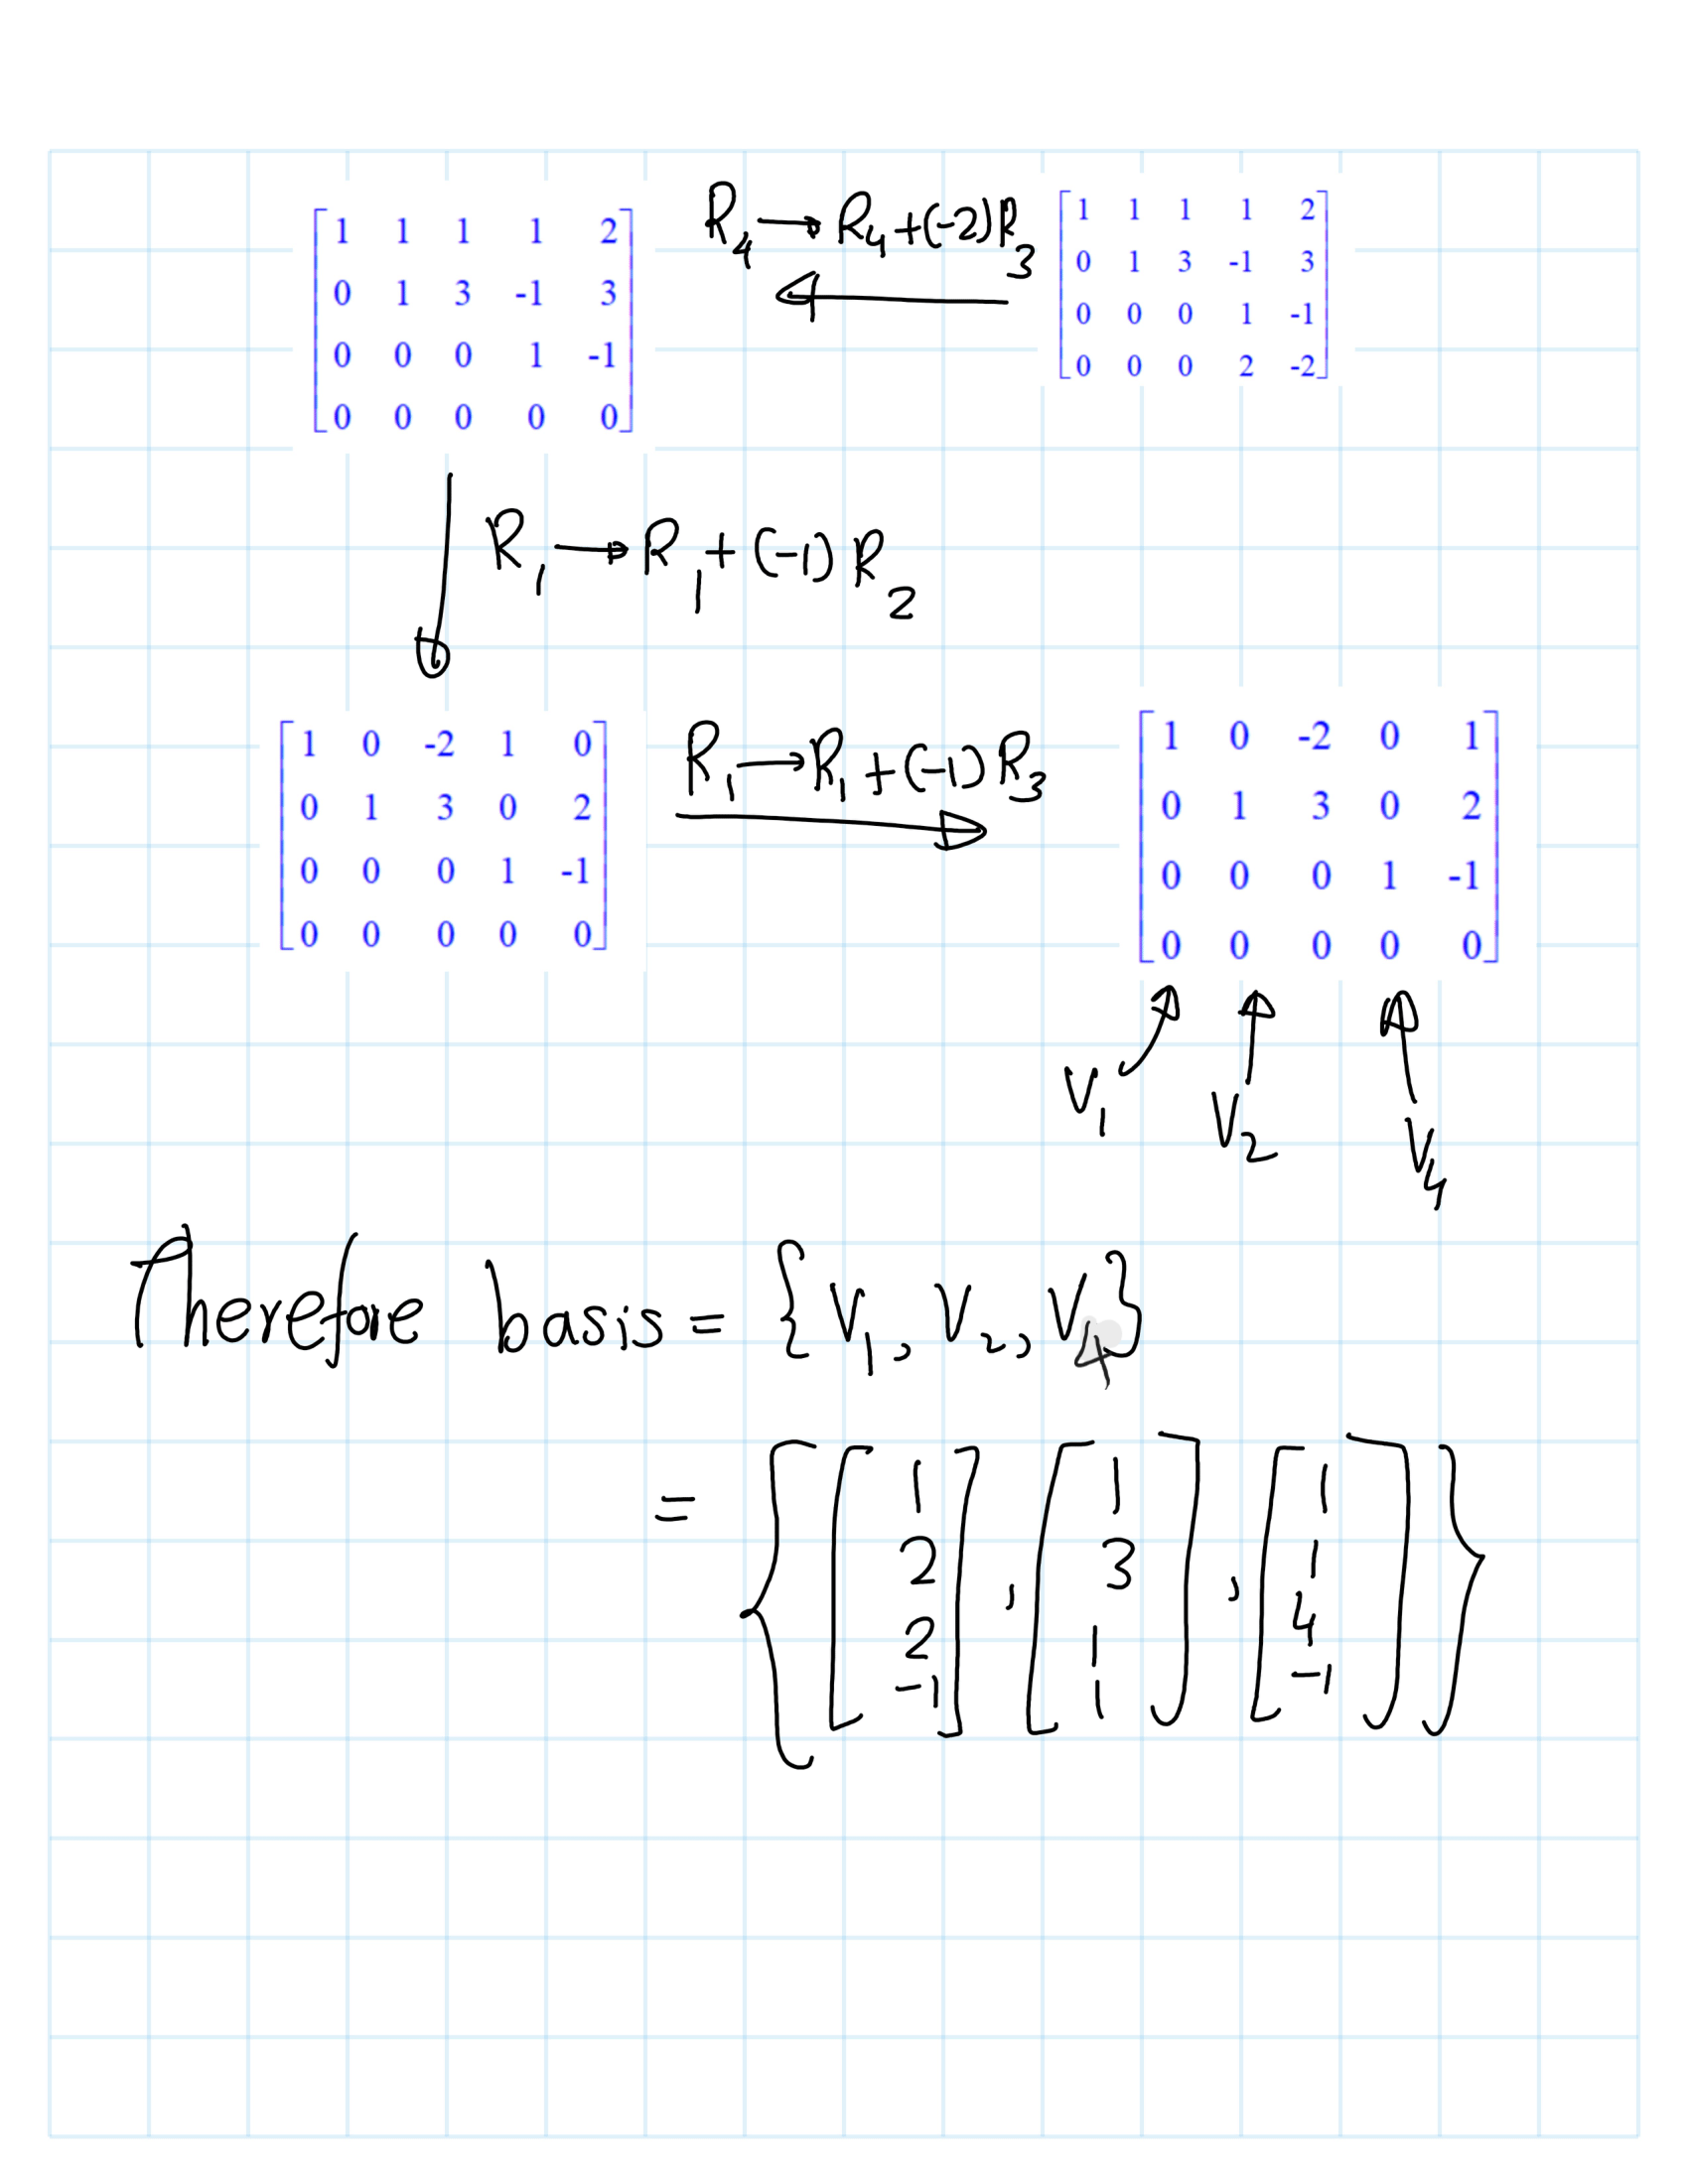 1 1 1 1 2
0 1 3 -1 3
0 0 0 1 -1
0 0 0 0 0
R4 → R4 + (-2)R3
1 1 1 1 2
0 1 3 -1 3
0 0 0 1 -1
0 0 0 2 -2
R1 → R1 + (-1) R2
1 0 -2 1 0
0 1 3 0 2
0 0 0 1 -1
0 0 0 0 0
R1 → R1 + (-1) R3
1 0 -2 0 1
0 1 3 0 2
0 0 0 1 -1
0 0 0 0 0
V1 V2 V4
Therefore basis = {V1, V2, V4}
= { [1 2 2 -1], [1 3 1 1], [1 1 4 -1] }